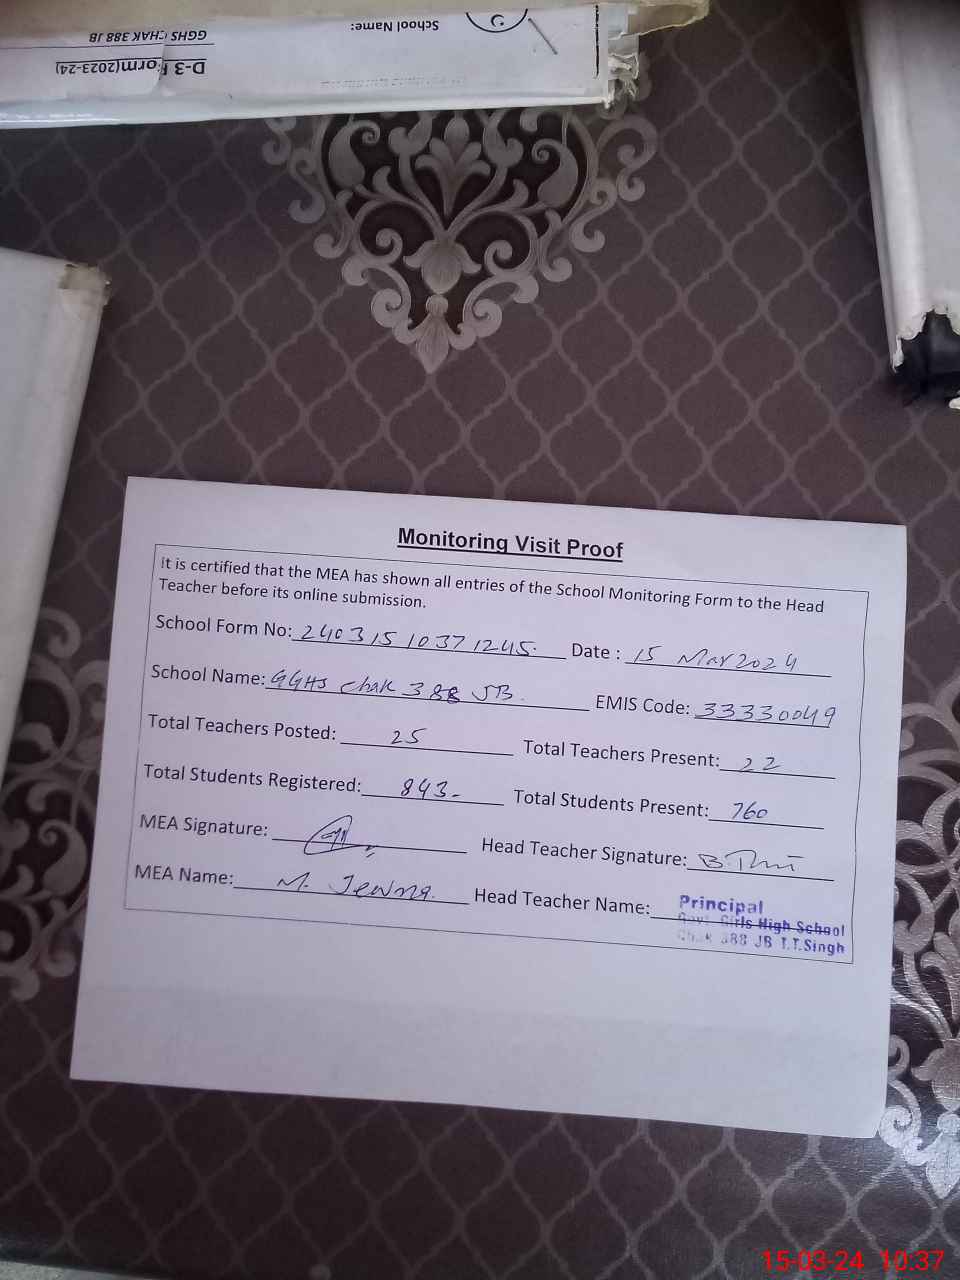 School Name:
GGHS CHAK 388 JB
D-3 Form(2023-24)
Monitoring Visit Proof
It is certified that the MEA has shown all entries of the School Monitoring Form to the Head
Teacher before its online submission.
School Form No: 24031510371245. Date : 15 Mar 2024
School Name: GGHS Chak 388 JB. EMIS Code: 33330049
Total Teachers Posted: 25 Total Teachers Present: 22
Total Students Registered: 843- Total Students Present: 760
MEA Signature: Head Teacher Signature:
MEA Name: M. Head Teacher Name:
Principal
Govt Girls High School
Chak 388 JB T.T.Singh
15-03-24 10:37